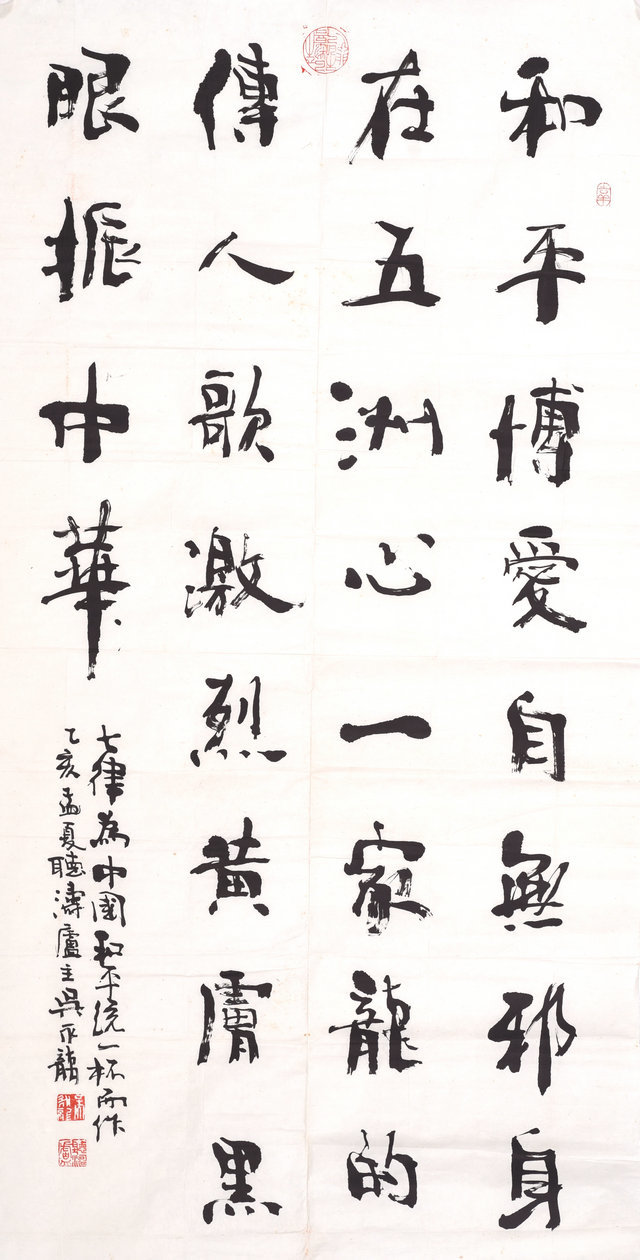 和平博愛自無邪身
在五洲心一家龍的
傳人歌激烈黃膚黑
眼振中華
七律為中國和平統一杯而作
乙亥孟夏聽濤廬主吳永龍